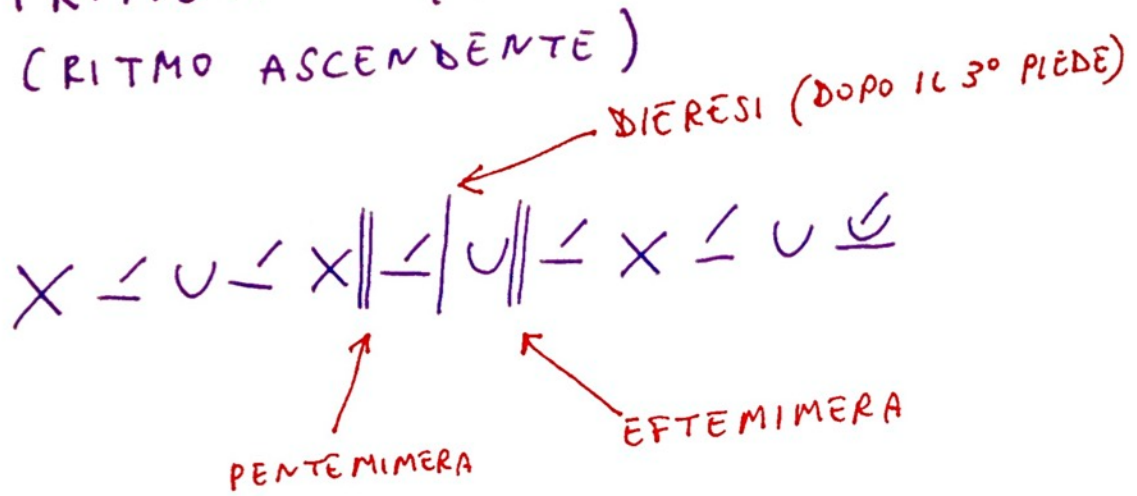 (RITMO ASCENDENTE)
DIERESI (DOPO IL 3° PIEDE)
X –́ ∪ –́ X || –́ | ∪ || –́ X –́ ∪ ∪́
PENTEMIMERA
EFTEMIMERA